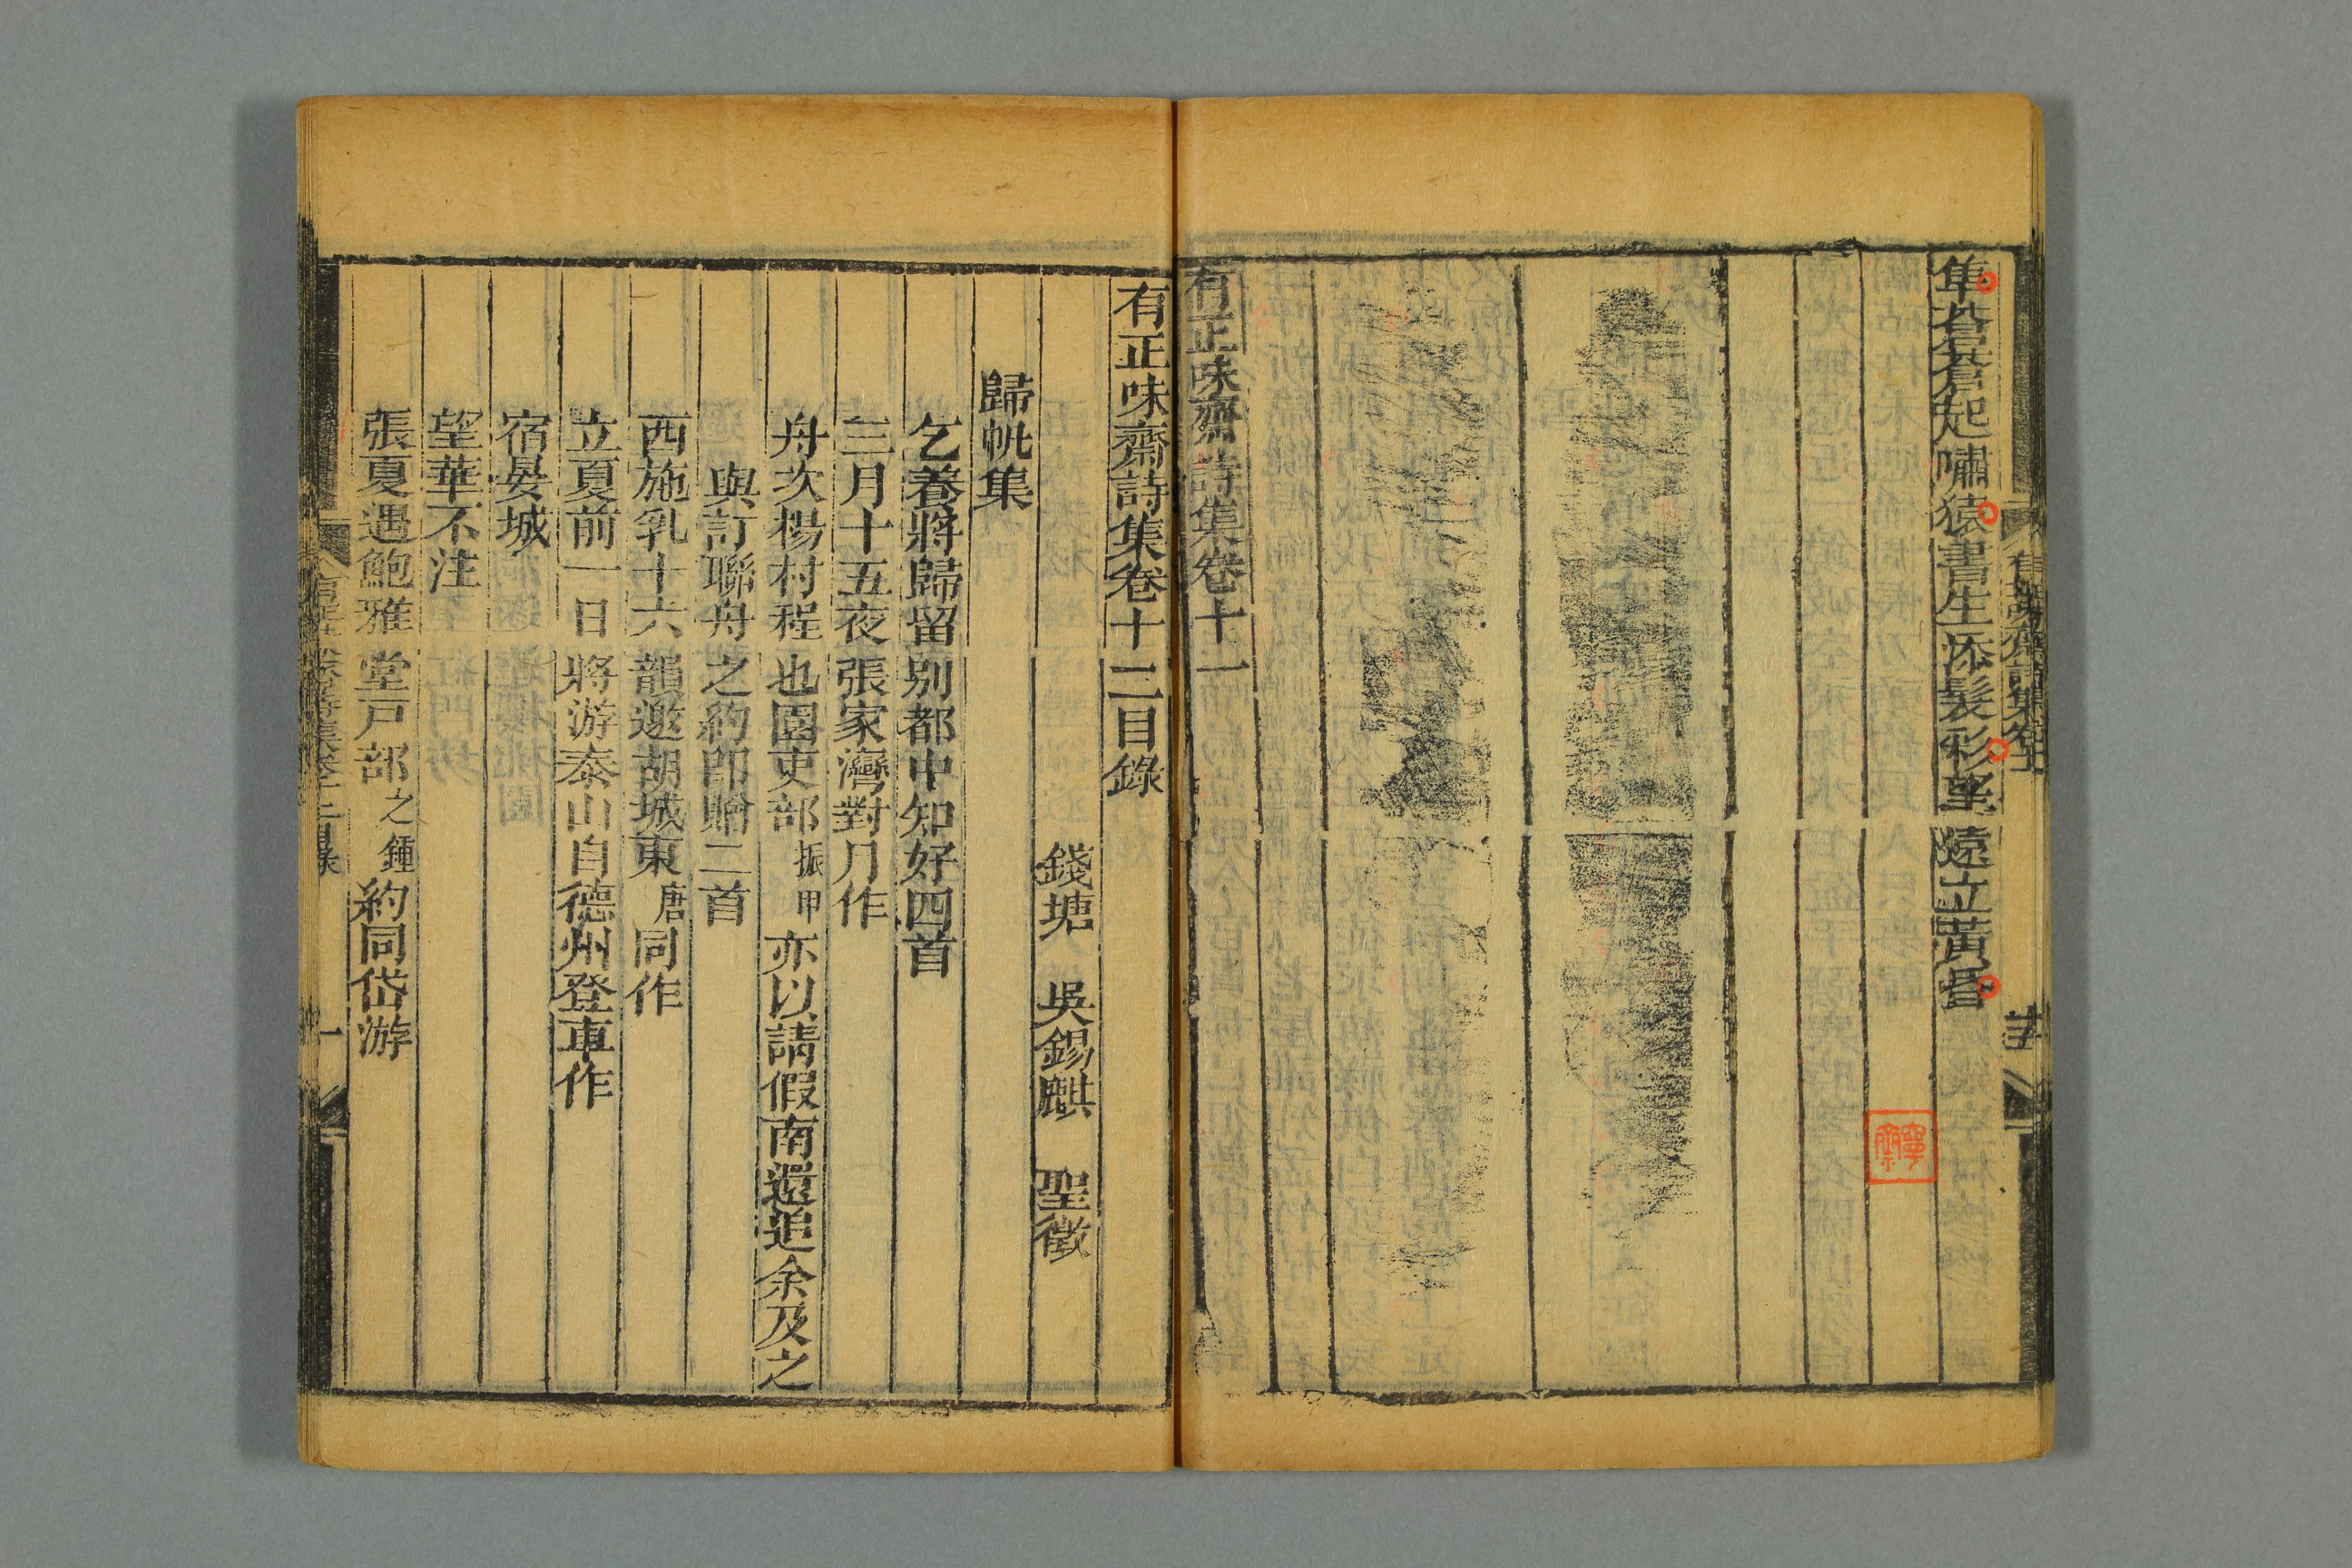 隼蒼蒼起嘯猿書生添髮彩望遠立黃昏
有正味齋詩集卷十一
寧齋
有正味齋詩集卷十二目錄
錢塘 吳錫麒 聖徵
歸帆集
乞養將歸留別都中知好四首
三月十五夜張家灣對月作
舟次楊村程也園吏部振甲亦以請假南還追余及之
與訂聯舟之約卽贈二首
西施乳十六韻邀胡城東唐同作
立夏前一日將游泰山自德州登車作
宿晏城
望華不注
張夏遇鮑雅堂戶部之鍾約同岱游
一